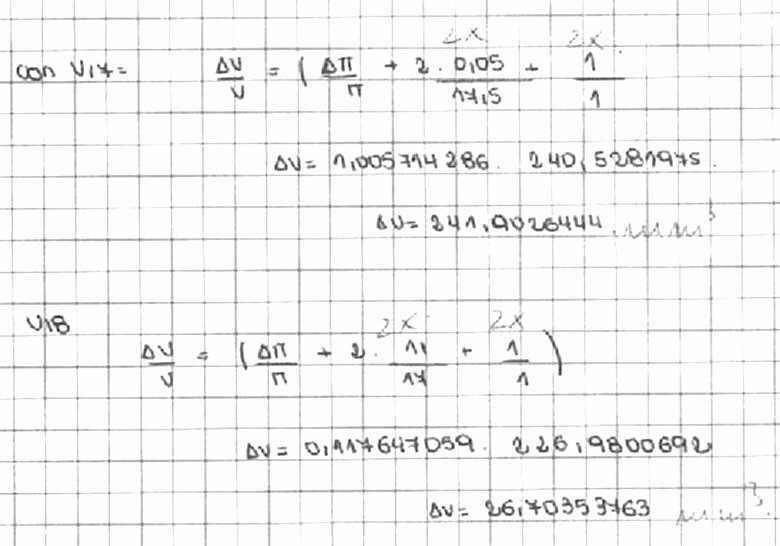 2x 2x
con V17= ΔV/V = ( Δπ/π + 2 . 0,05/17,5 + 1/1
ΔV= 1,005714286. 240,5281975.
ΔV= 241,9026444 mm³
V18
2x 2x
ΔV/V = ( Δπ/π + 2. 1/17 + 1/1 )
ΔV= 0,117647059. 226,9800692
ΔV= 26,70353763 mm³.